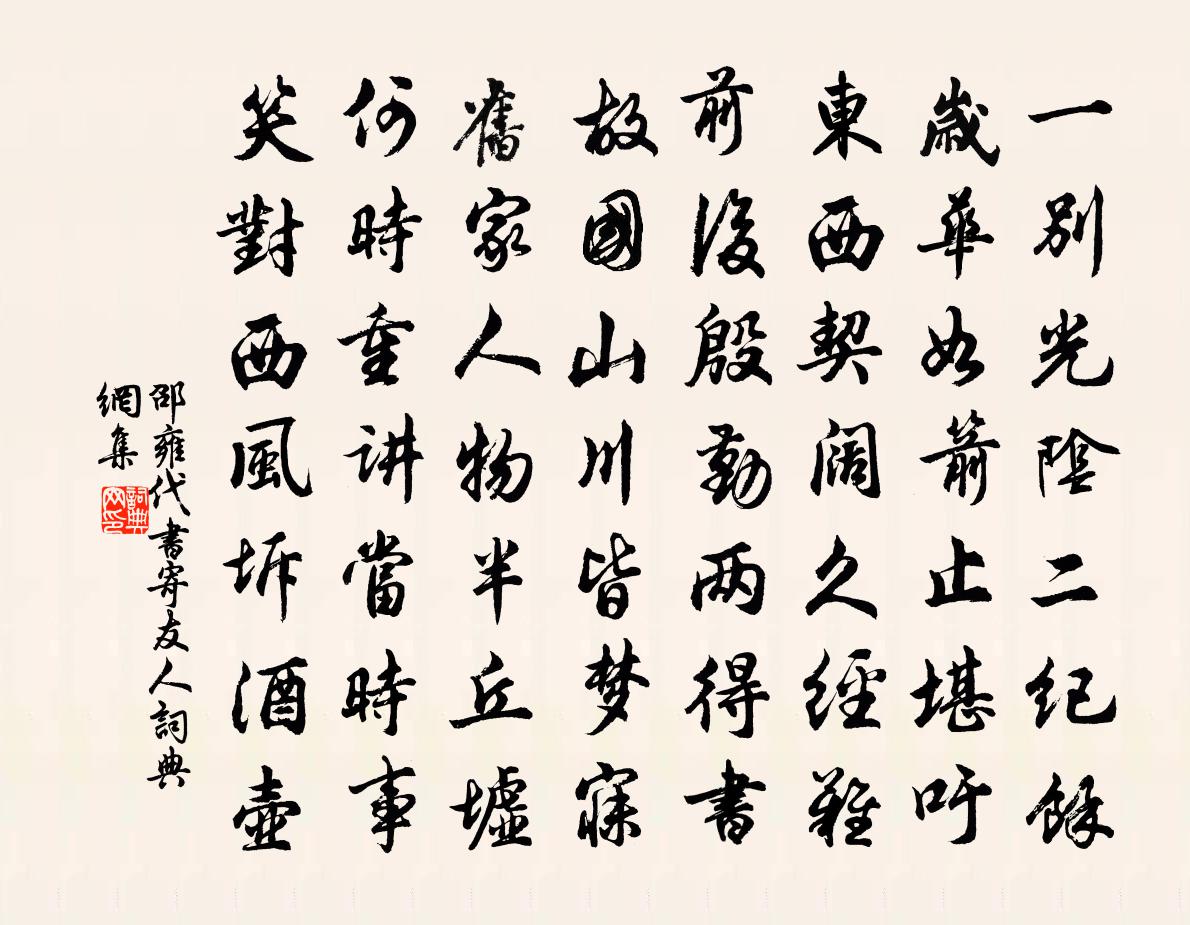 一別光陰二紀餘
歲華如箭止堪吁
東西契闊久經難
前後殷勤两得書
故國山川皆梦寐
舊家人物半丘墟
何時重讲當時事
笑對西風坼酒壺
邵雍代書寄友人詞典
網集
詞典网印